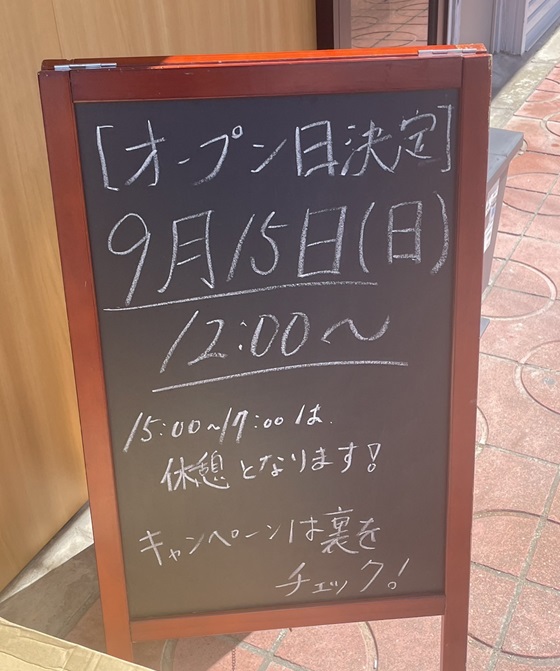 [オープン日決定]
9月15日(日)
12:00〜
15:00〜17:00は
休憩となります!
キャンペーンは裏を
チェック!